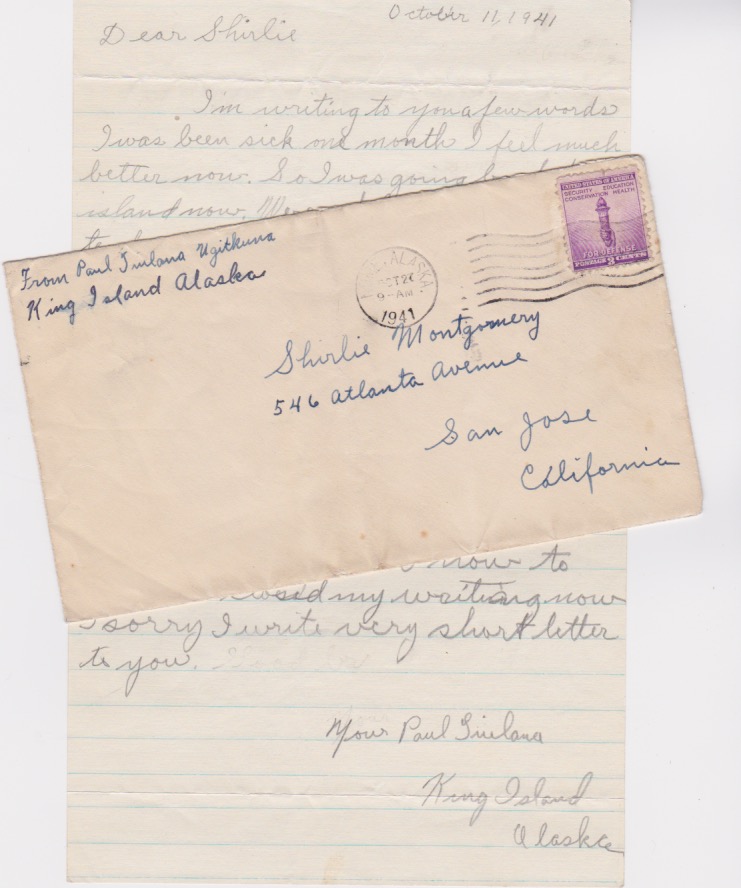 October 11, 1941
Dear Shirlie
I'm writing to you a few words
I was been sick one month I feel much
better now. So I was going
island now.
From Paul Tiulana Ugitkuna
King Island Alaska
ALASKA
OCT 2
9-AM
1941
UNITED STATES OF AMERICA
SECURITY EDUCATION
CONSERVATION HEALTH
FOR DEFENSE
POSTAGE 3 CENTS
Shirlie Montgomery
546 Atlanta Avenue
San Jose
California
now to
my writing now
I sorry I write very short letter
to you.
Your Paul Tiulana
King Island
Alaska